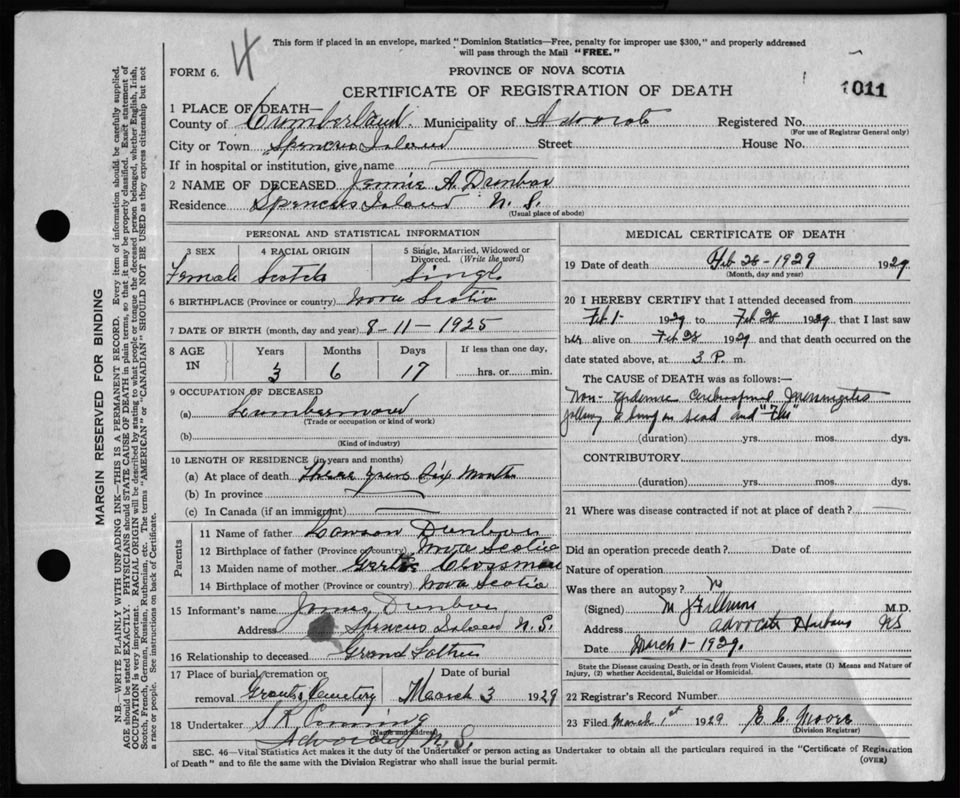 4
This form if placed in an envelope, marked "Dominion Statistics—Free, penalty for improper use $300," and properly addressed
will pass through the Mail "FREE."
FORM 6.
PROVINCE OF NOVA SCOTIA
CERTIFICATE OF REGISTRATION OF DEATH
1011
1 PLACE OF DEATH—
County of Cumberland Municipality of Advocate Registered No.
(For use of Registrar General only)
City or Town Spencers Island Street House No.
If in hospital or institution, give name
2 NAME OF DECEASED Jennie A. Dunbar
Residence Spencers Island N. S.
(Usual place of abode)
PERSONAL AND STATISTICAL INFORMATION
3 SEX 4 RACIAL ORIGIN 5 Single, Married, Widowed or
Divorced. (Write the word)
Female Scotch Singl
6 BIRTHPLACE (Province or country) Nova Scotia
7 DATE OF BIRTH (month, day and year) 8-11-1925
8 AGE IN Years Months Days If less than one day,
3 6 17 hrs. or min.
9 OCCUPATION OF DECEASED
(a)
(Trade or occupation or kind of work)
(b)
(Kind of industry)
10 LENGTH OF RESIDENCE (in years and months)
(a) At place of death Three years Six Months
(b) In province
(c) In Canada (if an immigrant)
Parents
11 Name of father Dunbar
12 Birthplace of father (Province or country) Nova Scotia
13 Maiden name of mother Crossman
14 Birthplace of mother (Province or country) Nova Scotia
15 Informant's name James Dunbar
Address Spencers Island N. S.
16 Relationship to deceased Grand Father
17 Place of burial, cremation or Date of burial
removal Cemetery March 3 1929
18 Undertaker S R
(Name and address)
Advocate N. S.
MEDICAL CERTIFICATE OF DEATH
19 Date of death Feb 28-1929 1929
(Month, day and year)
20 I HEREBY CERTIFY that I attended deceased from
Feb 1- 1929 to Feb 28 1929, that I last saw
her alive on Feb 28 1929 and that death occurred on the
date stated above, at 3 P. m.
The CAUSE of DEATH was as follows:—
Non-epidemic Cerebrospinal Meningitis
and "Flu"
(duration) yrs. mos. dys.
CONTRIBUTORY
(duration) yrs. mos. dys.
21 Where was disease contracted if not at place of death?
Did an operation precede death? Date of
Nature of operation
Was there an autopsy? No
(Signed) M.D.
Address Advocate Harbour NS
Date March 1-1929.
State the Disease causing Death, or in death from Violent Causes, state (1) Means and Nature of
Injury, (2) whether Accidental, Suicidal or Homicidal.
22 Registrar's Record Number
23 Filed March 1st 1929 E. C. Moore
(Division Registrar)
SEC. 46—Vital Statistics Act makes it the duty of the Undertaker or person acting as Undertaker to obtain all the particulars required in the "Certificate of Registration
of Death" and to file the same with the Division Registrar who shall issue the burial permit.
(OVER)
MARGIN RESERVED FOR BINDING
N.B.—WRITE PLAINLY WITH UNFADING INK—THIS IS A PERMANENT RECORD. Every item of information should be carefully supplied.
AGE should be stated EXACTLY. PHYSICIANS should STATE CAUSE OF DEATH in plain terms, so that it may be properly classified. Exact statement of
OCCUPATION is very important. RACIAL ORIGIN will be described by stating to what people or tongue the deceased person belonged, whether English, Irish,
Scotch, French, German, Russian, Ruthenian, etc. The terms "AMERICAN" or "CANADIAN" SHOULD NOT BE USED as they express citizenship but not
a race or people. See instructions on back of Certificate.